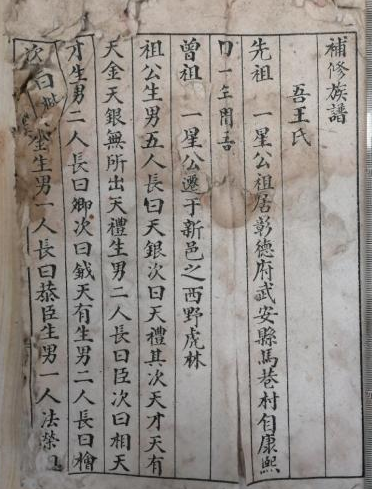 補修族譜
吾王氏
先祖 一星公祖居彰德府武安縣馬巷村自康熙
一年間吾
曾祖 一星公遷于新邑之西野虎林
祖公生男五人長曰天銀次曰天禮其次天才天有
天金天銀無所出天禮生男二人長曰臣次曰相天
才生男二人長曰卿次曰鉞天有生男二人長曰檜
次曰 生男一人長曰恭臣生男一人法榮